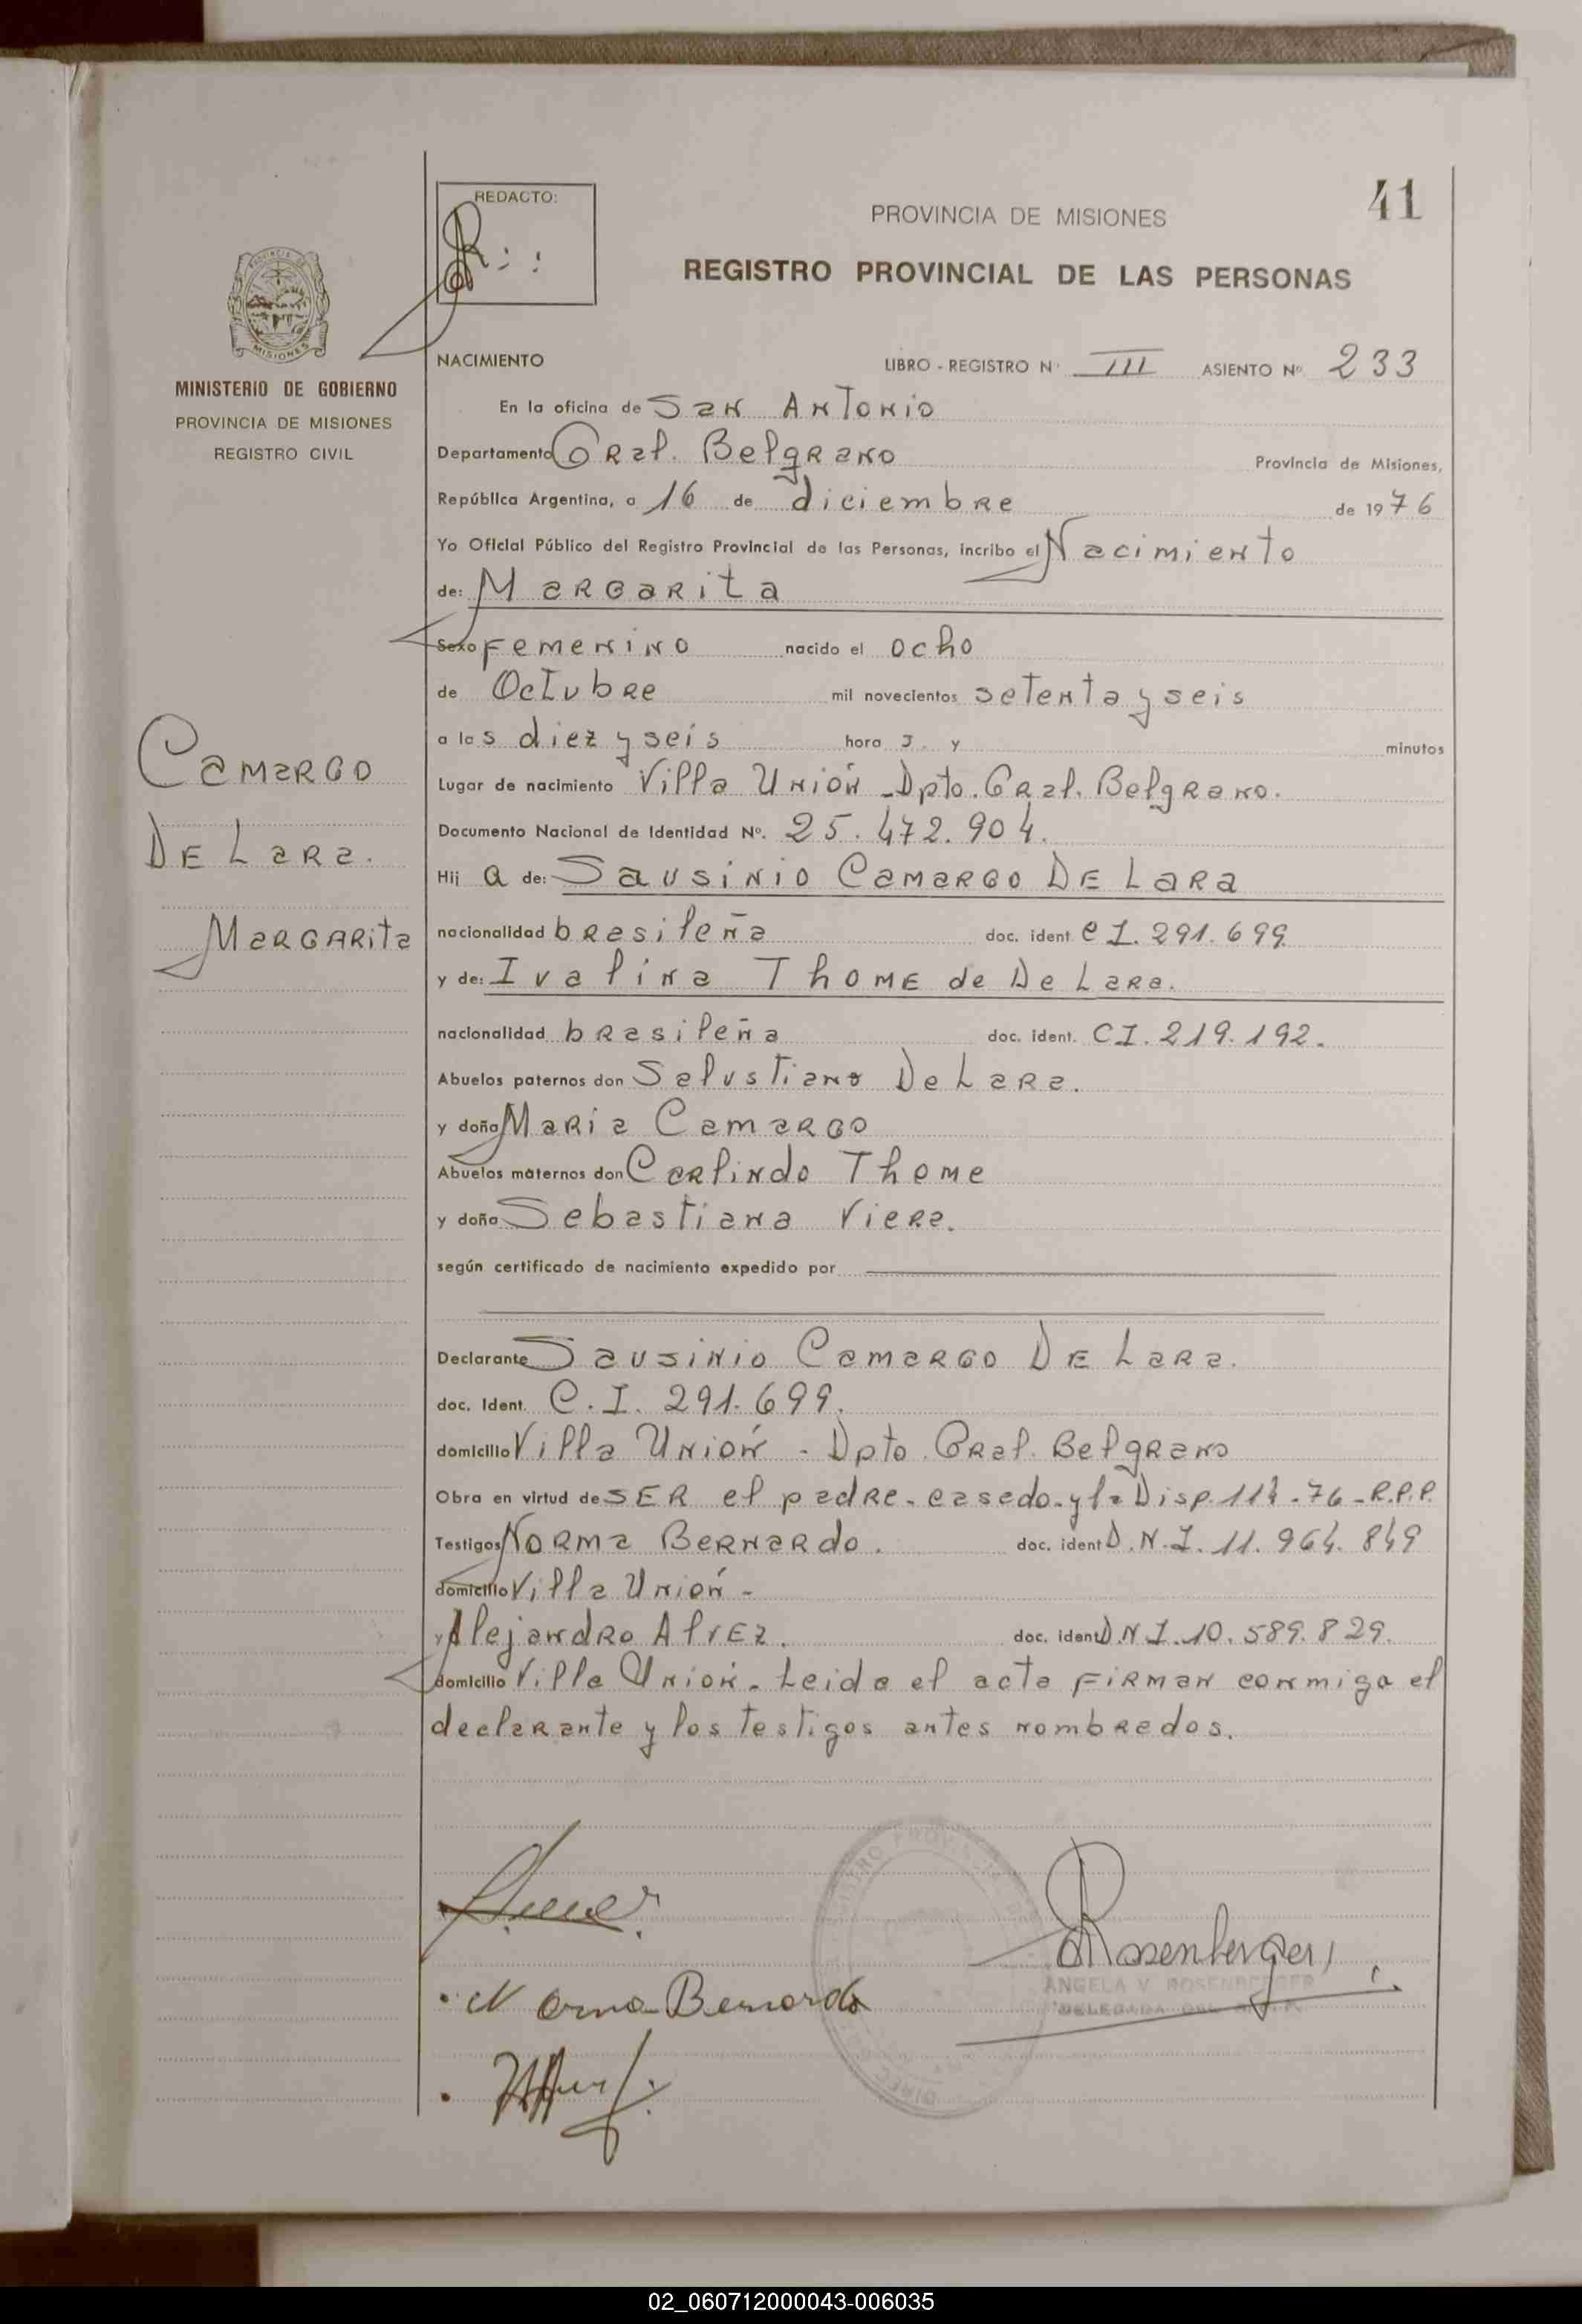 41
REDACTO:
PROVINCIA DE MISIONES
REGISTRO PROVINCIAL DE LAS PERSONAS
MISIONES
MINISTERIO DE GOBIERNO
PROVINCIA DE MISIONES
REGISTRO CIVIL
NACIMIENTO LIBRO - REGISTRO Nº III ASIENTO Nº 233
En la oficina de San Antonio
Departamento Gral. Belgrano Provincia de Misiones,
República Argentina, a 16 de diciembre de 1976
Yo Oficial Público del Registro Provincial de las Personas, incribo el Nacimiento
de: Margarita
Sexo Femenino nacido el ocho
de Octubre mil novecientos setenta y seis
a las diez y seis hora s. y minutos
Lugar de nacimiento Villa Unión - Dpto. Gral. Belgrano.
Documento Nacional de Identidad Nº. 25.472.904.
Hij a de: Sausinio Camargo De Lara
nacionalidad brasileña doc. ident. C I. 291.699
y de: Ivalina Thome de De Lara.
nacionalidad brasileña doc. ident. CI. 219.192.
Abuelos paternos don Salustiano De Lara.
y doña Maria Camargo
Abuelos maternos don Carlindo Thome
y doña Sebastiana Viera.
según certificado de nacimiento expedido por
Declarante Sausinio Camargo De Lara.
doc. Ident. C.I. 291.699.
domicilio Villa Unión - Dpto. Gral. Belgrano
Obra en virtud de SER el padre - casado - y la Disp. 114-76-R.P.P.
Testigos Norma Bernardo. doc. ident D.N.I. 11.964.849
domicilio Villa Unión -
y Alejandro Alvez. doc. ident D.N I. 10.589.829.
domicilio Villa Unión. Leida el acta firman conmigo el
declarante y los testigos antes nombrados.
Camargo
De Lara.
Margarita
Norma Bernardo
Rosenberger
ANGELA V. ROSENBERGER
DELEGADA DEL R.P.P.
02_060712000043-006035